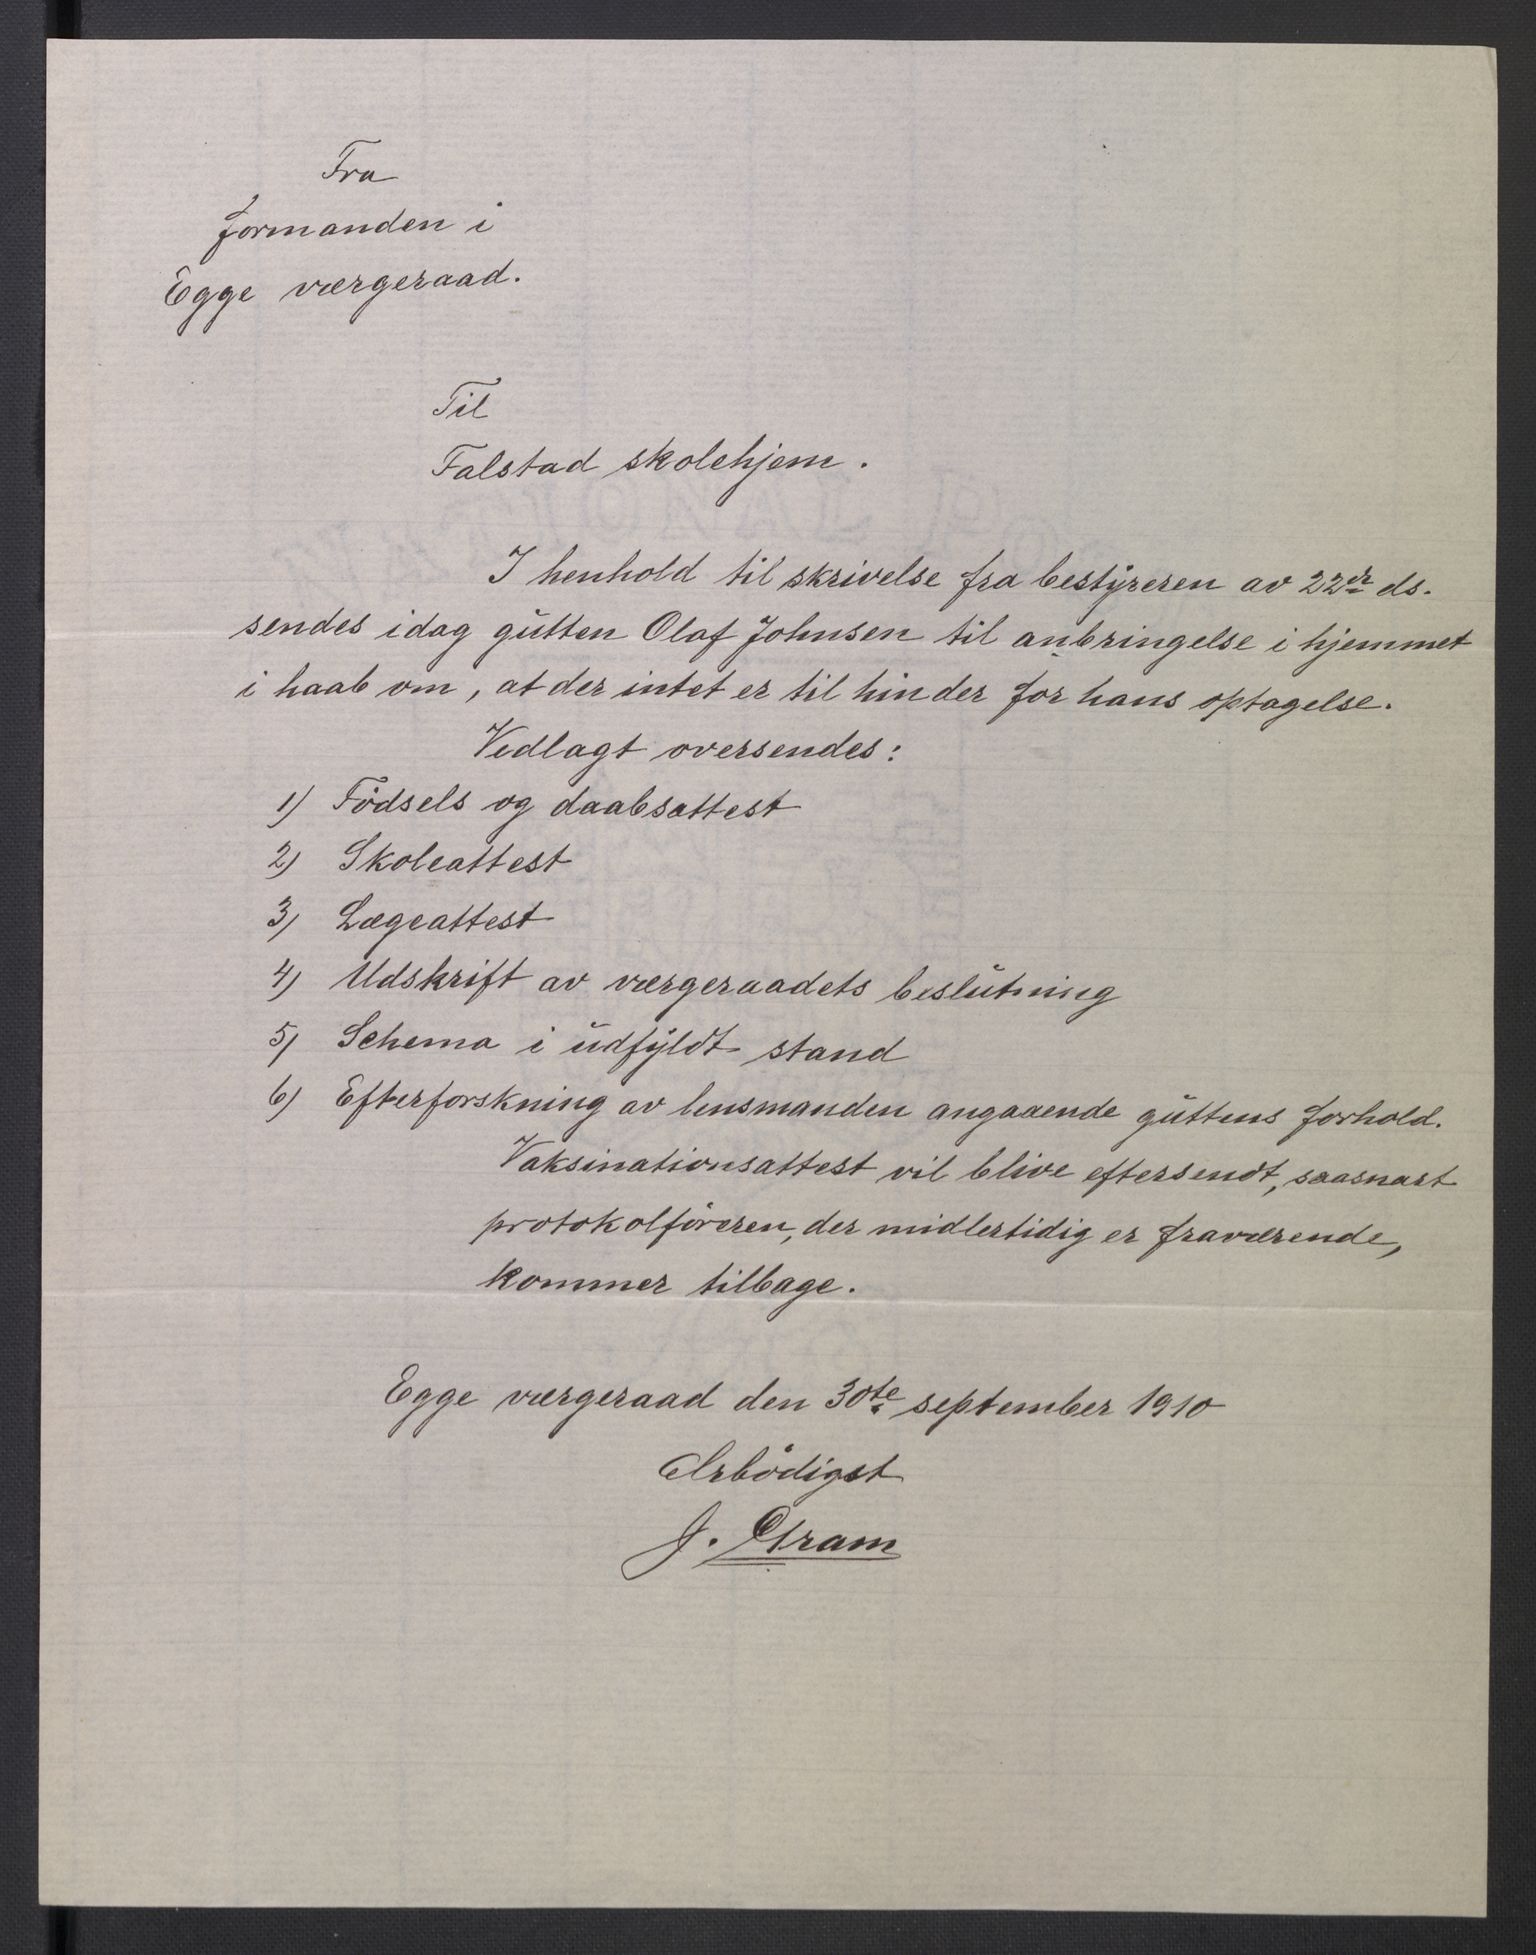 Fra
formanden i
Egge værgeraad.
Til
Falstad skolehjem.
I henhold til skrivelse fra bestyreren av 22de ds.
sendes idag gutten Olaf Johnsen til anbringelse i hjemmet
i haab om, at der intet er til hinder for hans optagelse.
Vedlagt oversendes:
1) Födsels og daabsattest
2) Skoleattest
3) Lægeattest
4) Udskrift av værgeraadets beslutning
5) Schema i udfyldt stand
6) Efterforskning av lensmanden angaaende guttens forhold.
Vaksinationsattest vil blive eftersendt, saasnart
protokolföreren, der midlertidig er fraværende,
kommer tilbage.
Egge værgeraad den 30te september 1910
Ærbödigst
J. Gram